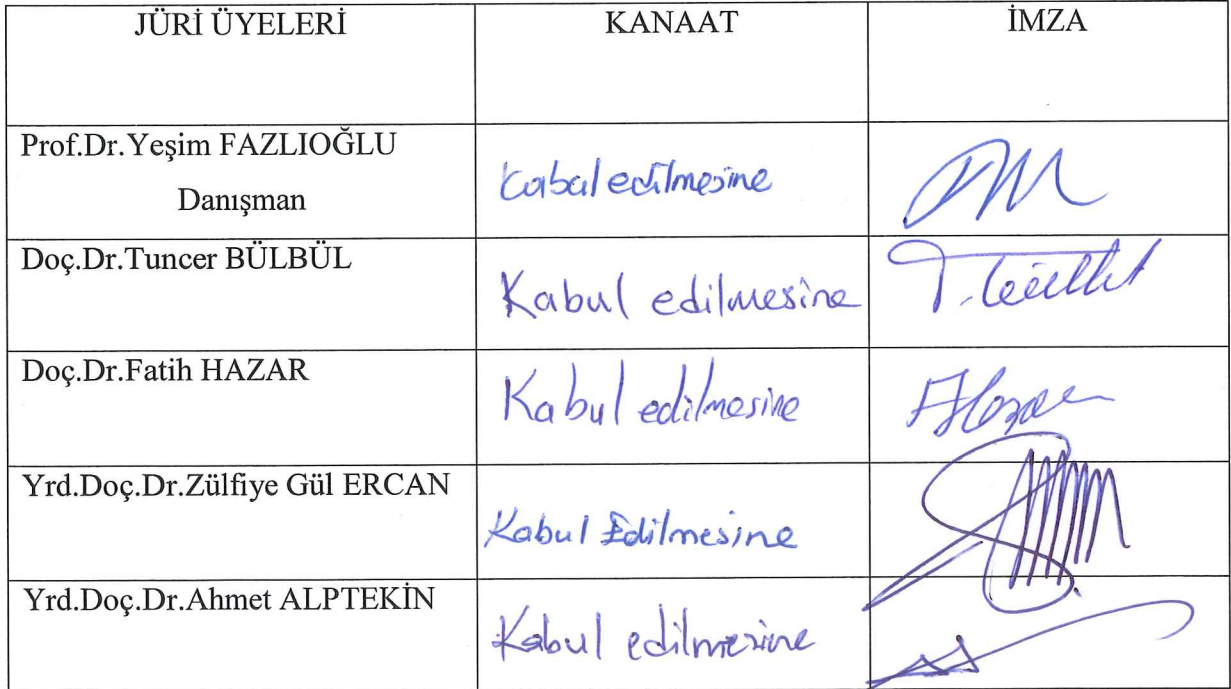 JÜRİ ÜYELERİ KANAAT İMZA
Prof.Dr.Yeşim FAZLIOĞLU
Danışman
Kabul edilmesine
Doç.Dr.Tuncer BÜLBÜL
Kabul edilmesine
Doç.Dr.Fatih HAZAR
Kabul edilmesine
Yrd.Doç.Dr.Zülfiye Gül ERCAN
Kabul Edilmesine
Yrd.Doç.Dr.Ahmet ALPTEKİN
Kabul edilmesine